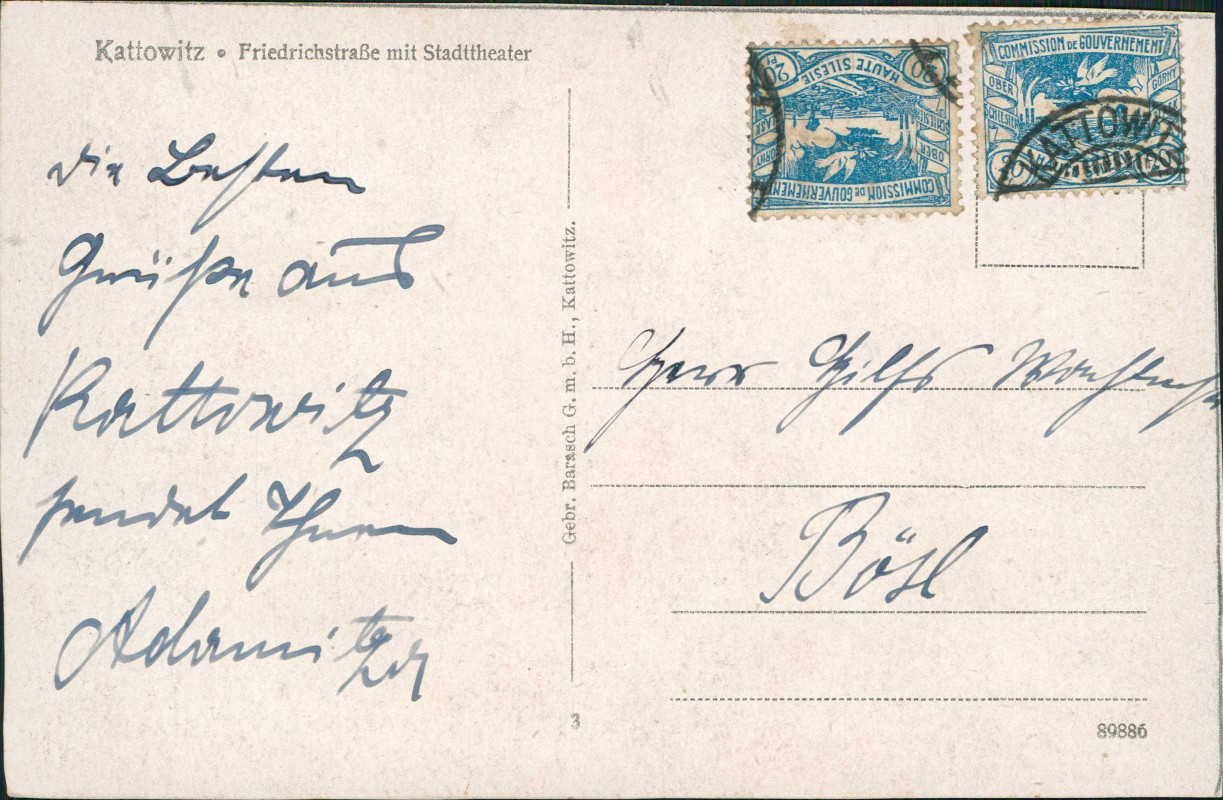 Kattowitz • Friedrichstraße mit Stadttheater
die Besten
Grüße aus
Kattowitz
sendet Ihnen
Gebr. Barasch G. m. b. H., Kattowitz.
3
COMMISSION DE GOUVERNEMENT
HAUTE SILESIE
OBER
20
COMMISSION DE GOUVERNEMENT
OBER
GORNY
20
KATTOWITZ
Herr Hilfs
Bösl
89886